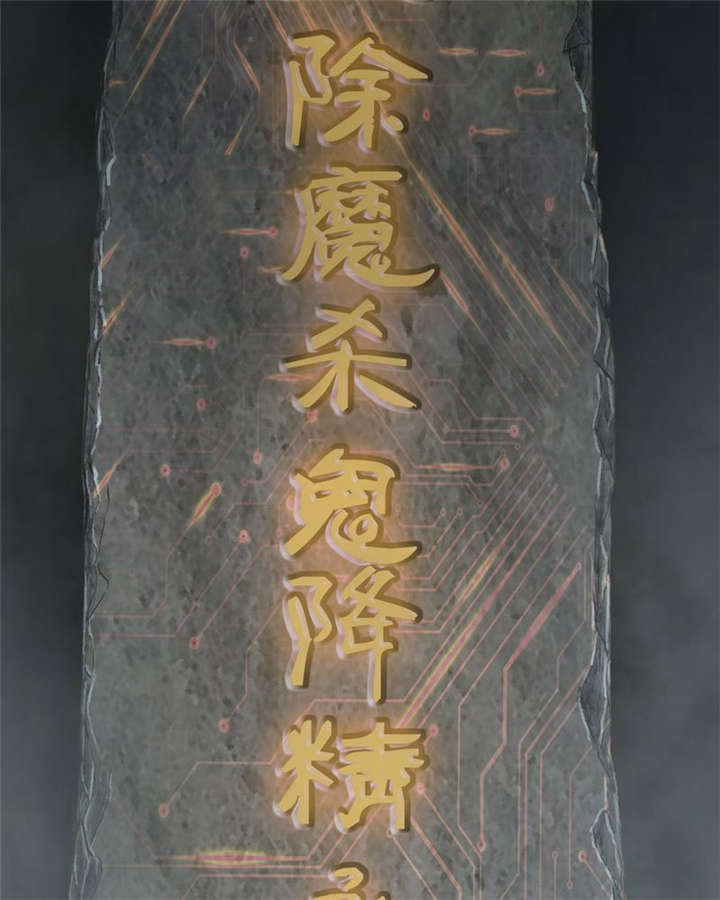 除魔杀鬼降精